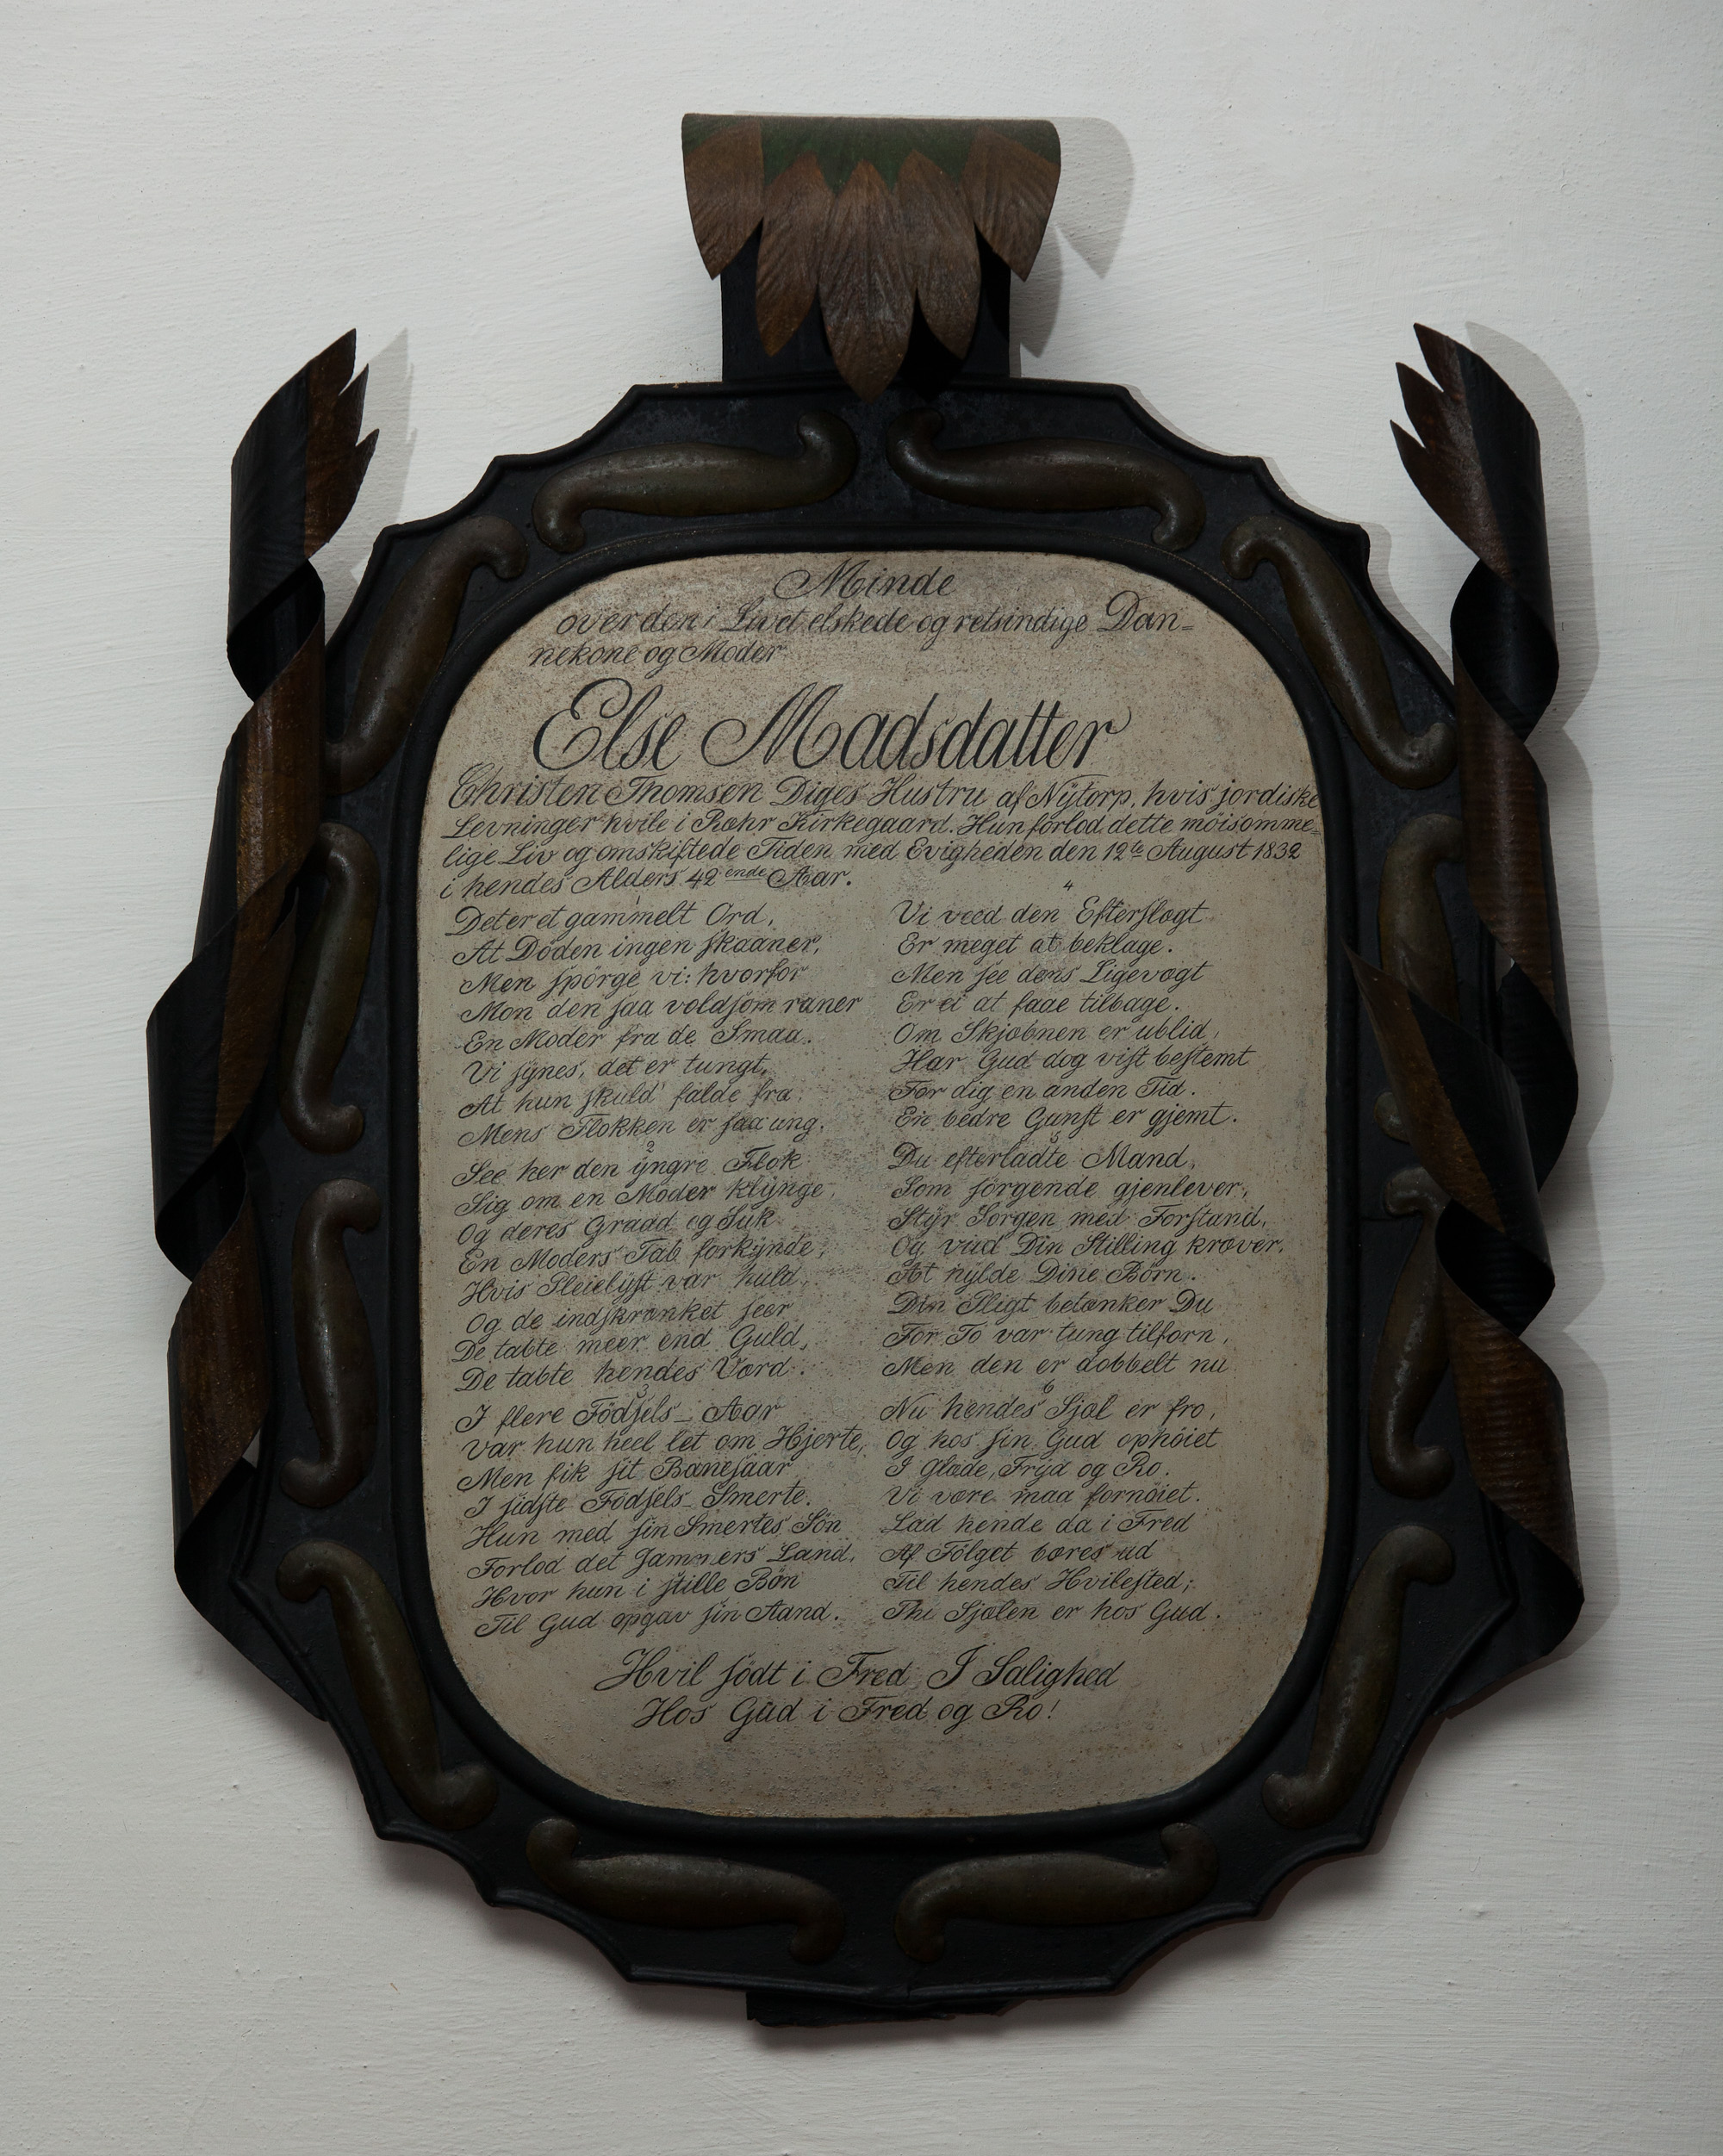 Minde
over den i Livet elskede og retsindige Dan=
nekone og Moder
Else Madsdatter
Christen Thomsen Diges Hustru af Nÿtorp, hvis jordiske
Levninger hvile i Røhr Kirkegaard. Hun forlod dette møisomme=
lige Liv og omskiftede Tiden med Evigheden den 12te August 1832
i hendes Alders 42ende Aar.
1
Det er et gammelt Ord,
At Döden ingen skaaner,
Men spörge vi: hvorfor
Mon den saa voldsom raner
En Moder fra de Smaa.
Vi sÿnes, det er tungt,
At hun skuld' falde fra,
Mens Flokken er saa ung.
2
See her den ÿngre Flok
Sig om en Moder klÿnge,
Og deres Graad og Suk
En Moders Tab forkÿnde,
Hvis Pleielÿst var huld,
Og de indskrænket seer
De tabte meer end Guld,
De tabte hendes Værd.
3
I flere Födsels-Aar
Var hun heel let om Hjerte,
Men fik sit Banesaar
I sidste Födsels-Smerte.
Hun med sin Smertes Sön
Forlod det Jammers Land,
Hvor hun i stille Bön
Til Gud opgav sin Aand.
4
Vi veed den Efterslægt
Er meget at beklage.
Men see dens Ligevægt
Er ei at faae tilbage.
Om Skjæbnen er ublid,
Har Gud dog vist bestemt
For dig en anden Tid.
En bedre Gunst er gjemt.
5
Du efterladte Mand,
Som sörgende gjenlever,
Stÿr Sorgen med Forstand,
Og viid Din Stilling kræver,
At hÿlde Dine Börn.
Din Pligt betænker Du
For To var tung tilforn,
Men den er dobbelt nu
6
Nu hendes Sjæl er fro,
Og hos sin Gud ophöiet
I Glæde, Frÿd og Ro.
Vi være maa fornöiet.
Lad hende da i Fred
Af Fölget bæres ud
Til hendes Hvilested;
Thi Sjælen er hos Gud.
Hvil södt i Fred, I Salighed
Hos Gud i Fred og Ro!